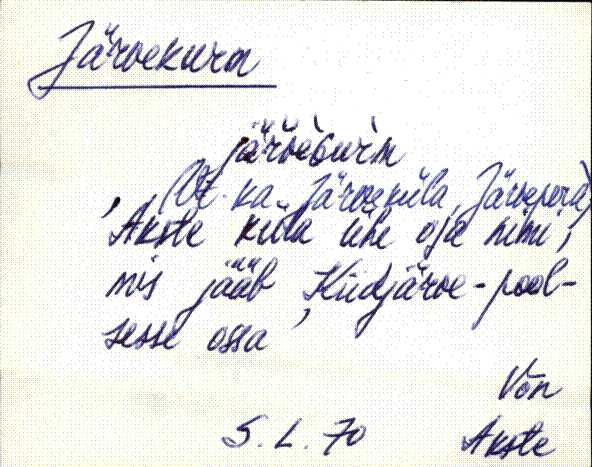 Järvekurm
järvèGùrm
(Vt. ka Järveküla, Järvepera)
'Akste küla ühe oja nimi,
mis jääb Kiidjärve-pool-
sesse ossa'
Võn
S. L. 70 Akste